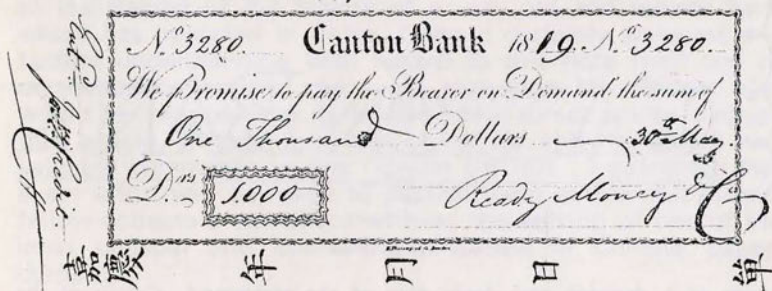 No. 3280. Canton Bank 1819. No. 3280.
We Promise to pay the Bearer on Demand the sum of
One Thousand Dollars 30th May
Drs 1.000
Ready Money & Co
Ent.
嘉慶 年 月 日 單